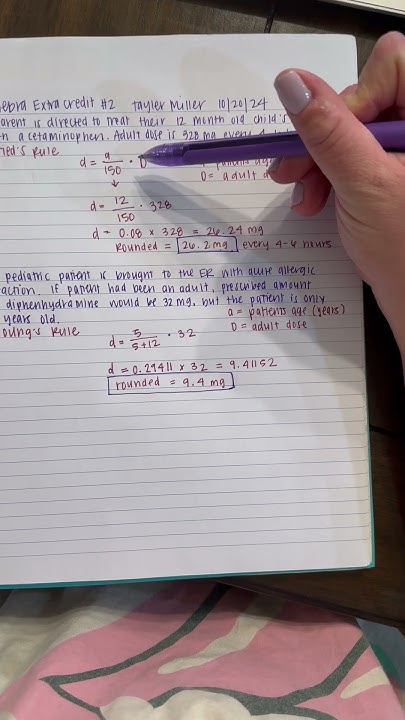 ebra Extra Credit #2 Tayler Miller 10/20/24
arent is directed to treat their 12 month old child's
n acetaminophen. Adult dose is 328 mg every
ied's Rule
d = a/150 · D
D = adult d
d = 12/150 · 328
d = 0.08 × 328 = 26.24 mg
Rounded = 26.2 mg every 4-6 hours
pediatric patient is brought to the ER with acute allergic
action. If patient had been an adult, prescribed amount
diphenhydramine would be 32 mg, but the patient is only
years old.
a = patients age (years)
oung's Rule
d = 5/5+12 · 32
D = adult dose
d = 0.29411 × 32 = 9.41152
rounded = 9.4 mg